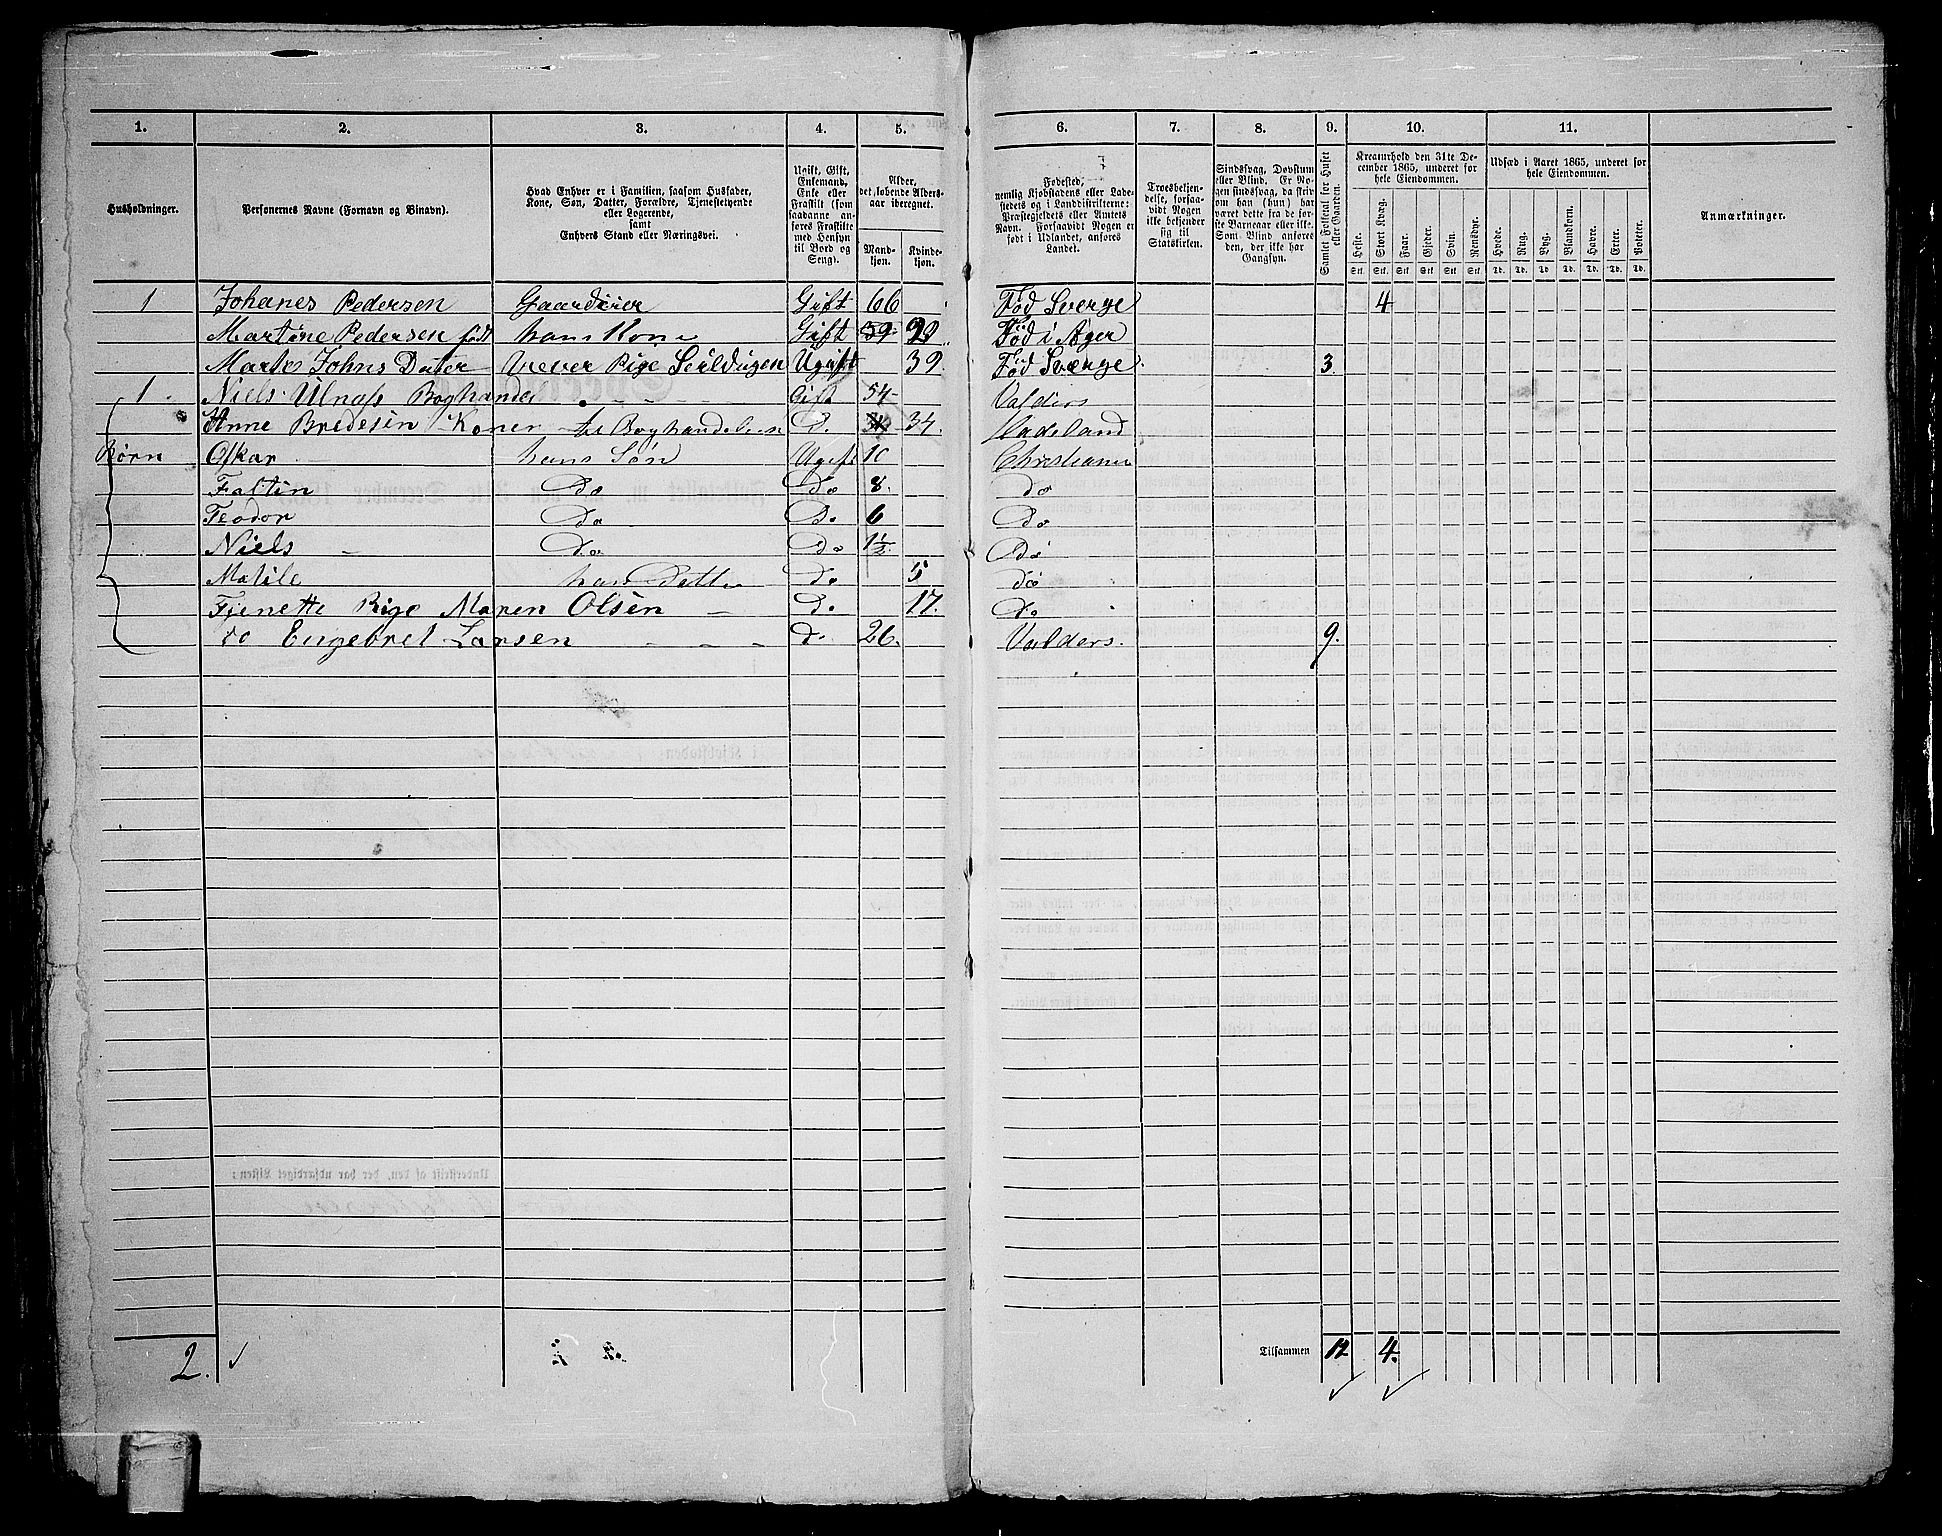 1. 2. 3. 4. 5. 6. 7. 8. 9. 10. 11.
Husholdninger.
Personernes Navne (Fornavn og Binavn).
Hvad Enhver er i Familien, saasom Husfader,
Kone, Søn, Datter, Forældre, Tjenestetyende
eller Logerende,
samt
Enhvers Stand eller Næringsvei.
Ugift, Gift,
Enkemand,
Enke eller
Fraskilt (som
saadanne an-
føres Fraskilte
med Hensyn
til Bord og
Seng).
Alder,
det løbende Alders-
aar iberegnet.
Mand-
kjøn.
Kvinde-
kjøn.
Fødested,
nemlig Kjøbstadens eller Lade-
stedets og i Landdistrikterne:
Præstegjeldets eller Amtets
Navn. Forsaavidt Nogen er
født i Udlandet, anføres
Landet.
Troesbekjen-
delse, forsaa-
vidt Nogen
ikke bekjender
sig til
Statskirken.
Sindssvag, Døvstum
eller Blind. Er No-
gen sindssvag, da skriv
om han (hun) har
været dette fra de før-
ste Barneaar eller ikke.
Som Blind anføres
den, der ikke har
Gangsyn.
Samlet Folketal for Huset
eller Gaarden.
Kreaturhold den 31te De-
cember 1865, underet for
hele Eiendommen.
Heste. Stort Kvæg. Faar. Gjeder. Svin. Rensdyr.
Stk. Stk. Stk. Stk. Stk. Stk.
Udsæd i Aaret 1865, underet for
hele Eiendommen.
Hvede. Rug. Byg. Blandkorn. Havre. Erter. Poteter.
Td. Td. Td. Td. Td. Td. Td.
Anmærkninger.
1 Johanes Pedersen Gaardeier Gift 66 Fød Sverge 4
Martine Pedersen født hans Kone Gift 59 Fød i Ager
Marte Johns Dater Vever Pige Ugift 39. Fød Sværge 3
1. Niels Ulnæss Boghandler Gift 54 Valders
Anne Bredesen Konen til Boghandleren D. 34. Hadeland
Børn Oskar hans Søn Ugift 10 Christiania
Faltin Do Do 8. do
Teodor Do Do 6 Do
Niels Do Do 1½ Do
Matile hans Datter do 5 do
Tjenette Pige Maren Olsen do 17. do
do Engebret Larsen d. 26. Valders. 9.
2.
Tilsammen 12 4.